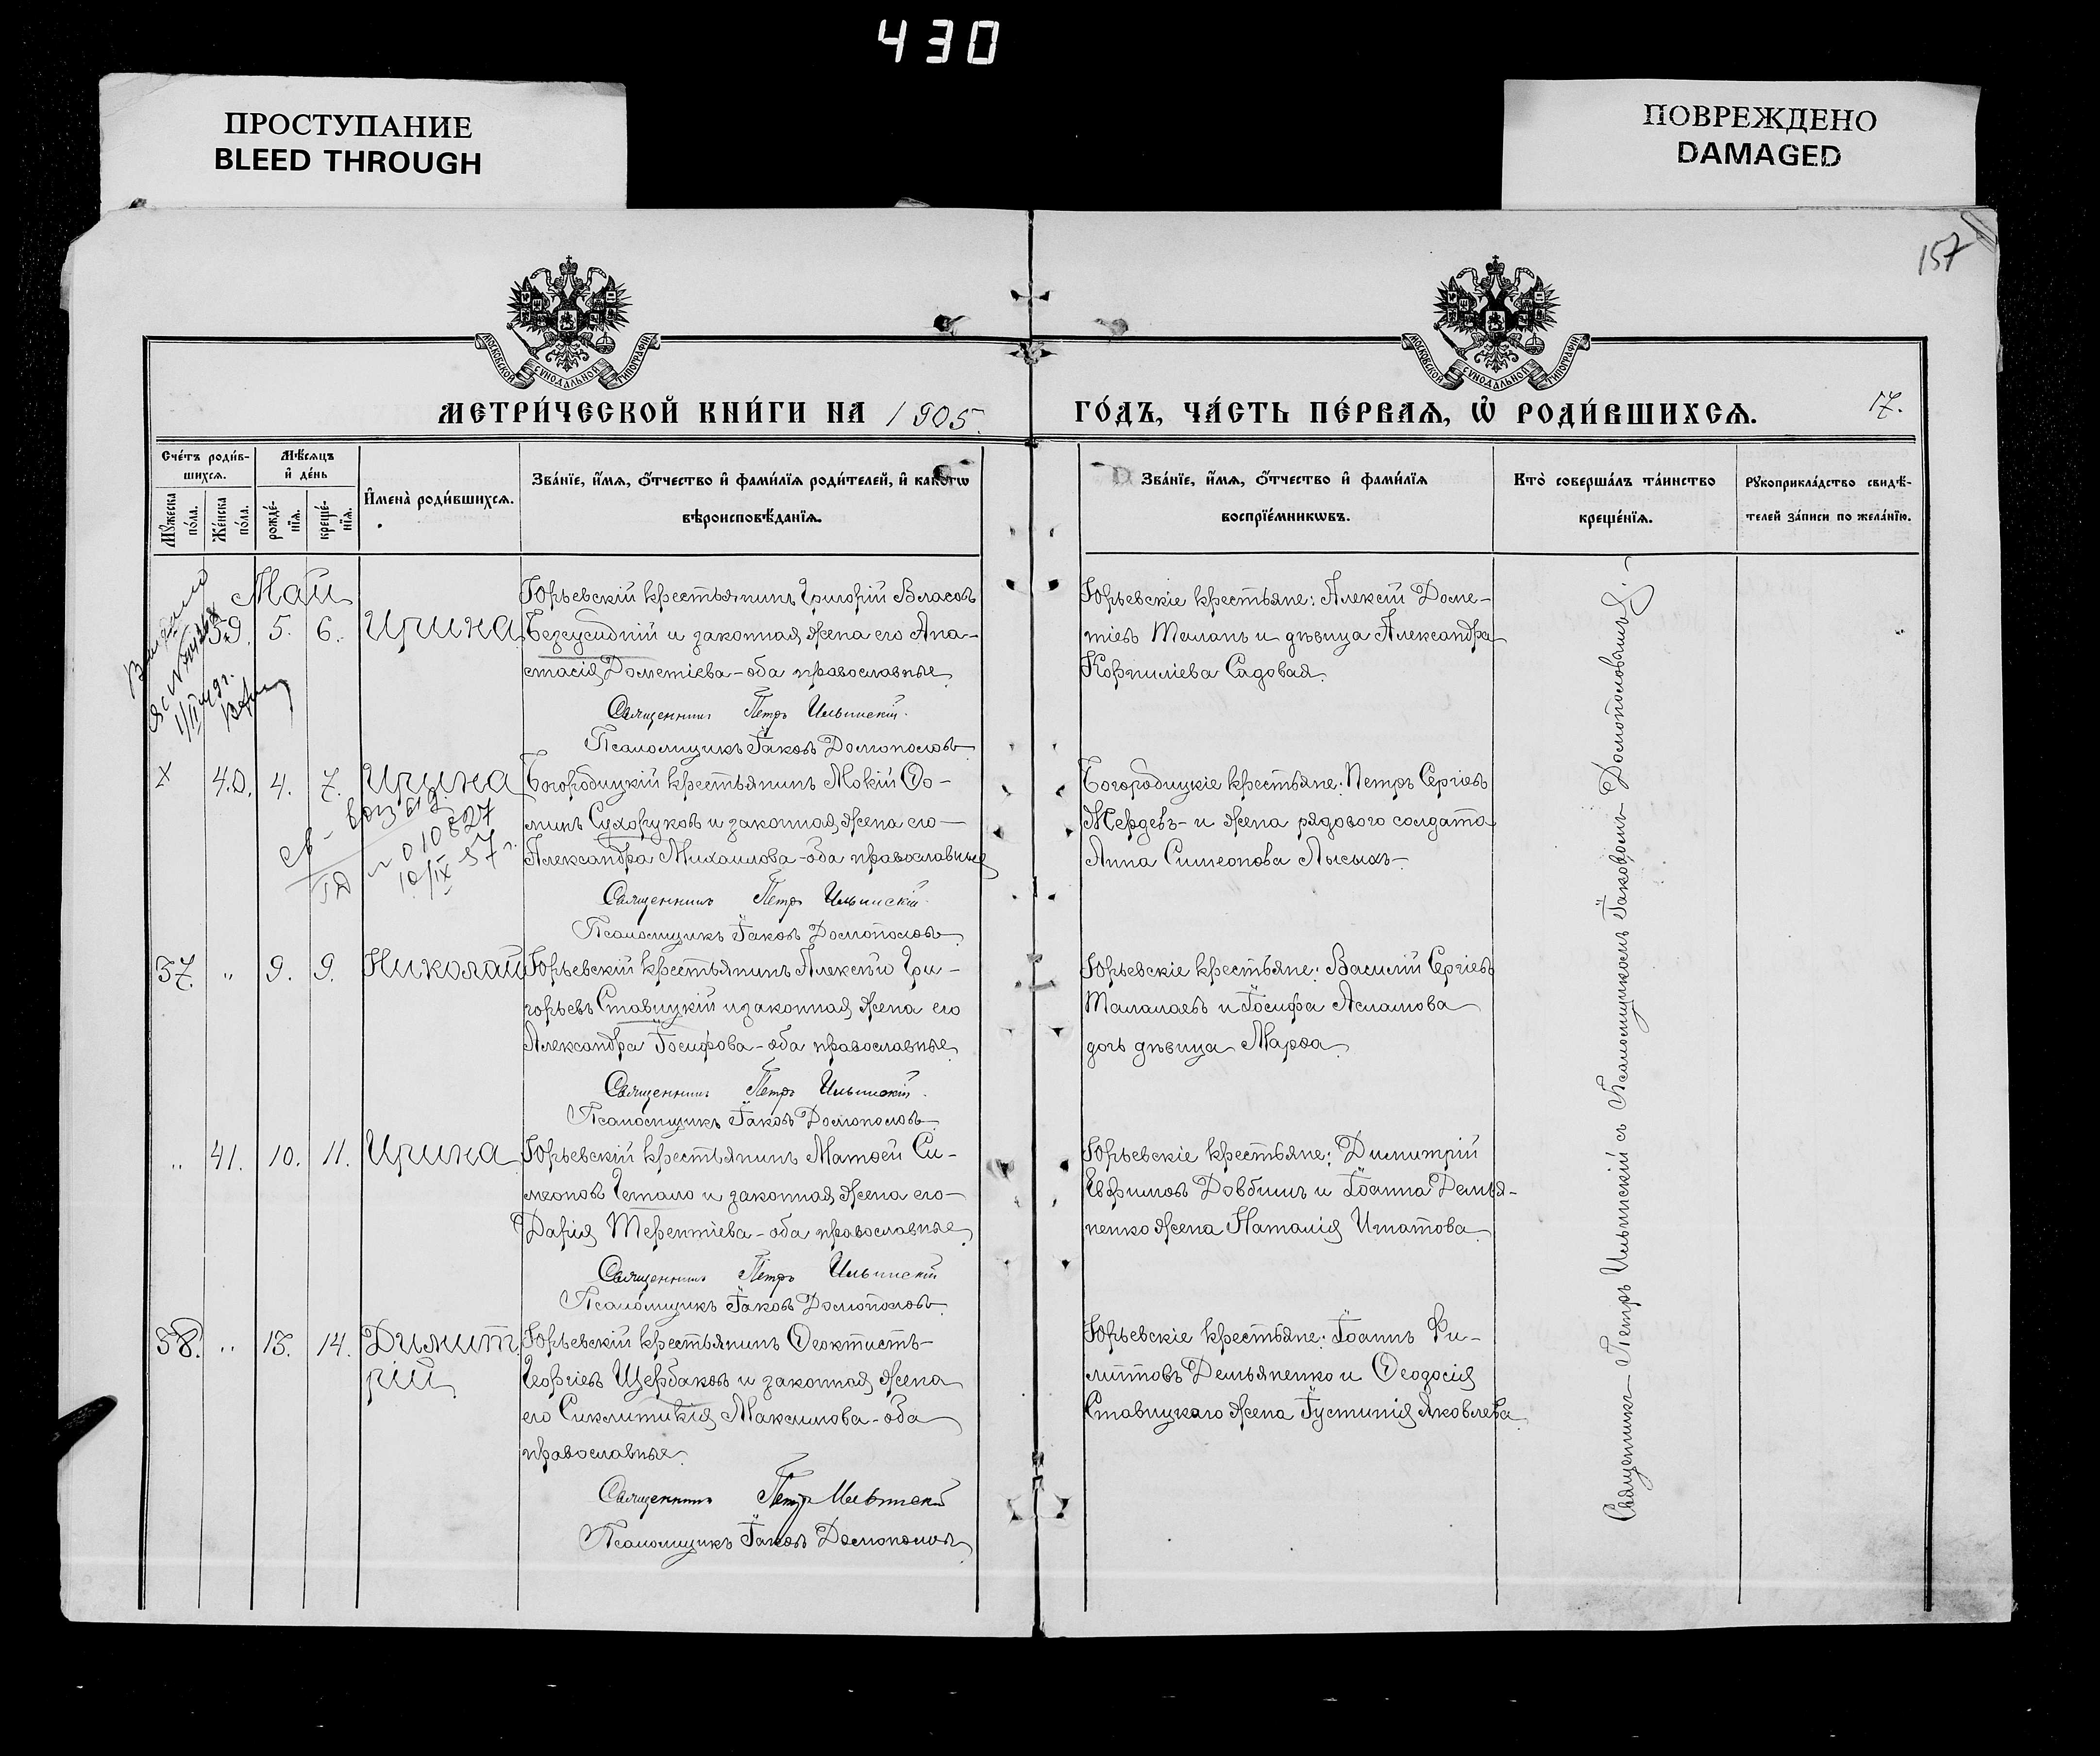 430
ПРОСТУПАНИЕ
BLEED THROUGH
ПОВРЕЖДЕНО
DAMAGED
157
МОСКОВСКОЙ СѴНОДАЛЬНОЙ ТИПОГРАФІИ
МОСКОВСКОЙ СѴНОДАЛЬНОЙ ТИПОГРАФІИ
МЕТРИ́ЧЕСКОЙ КНИ́ГИ НА 1905.
ГО́ДЪ, ЧА́СТЬ ПЕ́РВАѦ, Ѡ҆ РОДИ́ВШИХСѦ.
17.
Сче́тъ роди́в-
шихсѧ.
Мѣ́сѧцъ
и҆ де́нь
Мꙋ́жеска
по́ла.
Же́нска
по́ла.
рожде́-
нїѧ.
креще́-
нїѧ.
И҆мена̀ роди́вшихсѧ.
Зва́нїе, и҆́мѧ, ѻ҆́тчество и҆ фами́лїѧ роди́телей, и҆ како́гѡ
вѣроисповѣ́данїѧ.
Зва́нїе, и҆́мѧ, ѻ҆́тчество и҆ фами́лїѧ
воспрїе́мникѡвъ.
Кто̀ соверша́лъ та́инство
креще́нїѧ.
Рꙋкоприкла́дство свидѣ́-
телей за́писи по жела́нїю.
Май
39. 5. 6. Ирина
Юрьевскій крестьянинъ Григорій Власовъ
Безусидній и законная жена его Ана-
стасія Дометіева - оба православные
Священникъ Петръ Ильинскій.
Псаломщикъ Іаковъ Домополовъ
Юрьевскіе крестьяне: Алексій Доме-
тіевъ Талань и дѣвица Александра
Корниліева Садовая.
X 40. 4. 7. Ирина
св-во выд
ГД № 010827
10/IX 57 г.
Богородицкій крестьянинъ Мокій Ѳо-
минъ Сухоруковъ и законная жена его
Александра Михаилова - оба православные
Священникъ Петръ Ильинскій.
Псаломщикъ Іаковъ Домополовъ
Богородицкіе крестьяне: Петръ Сергіевъ
Жердевъ - и жена рядового солдата
Анна Симеонова Лысыхъ
37. " 9. 9. Николай
Юрьевскій крестьянинъ Алексѣй Гри-
горьевъ Ставицкій и законная жена его
Александра Іосифова - оба православные
Священникъ Петръ Ильинскій.
Псаломщикъ Іаковъ Домополовъ
Юрьевскіе крестьяне: Василій Сергіевъ
Талалаевъ и Іосифа Асламова
дочь дѣвица Марѳа
" 41. 10. 11. Ирина
Юрьевскій крестьянинъ Матѳей Си-
меоновъ Гетало и законная жена его
Дарія Терентіева - оба православные
Священникъ Петръ Ильинскій
Псаломщикъ Іаковъ Домополовъ
Юрьевскіе крестьяне: Димитрій
Евфимовъ Довбишъ и Іоанна Демья-
ненко жена Наталія Игнатова
38. " 13. 14. Димит
рій
Юрьевскій крестьянинъ Ѳеоктистъ
Георгіевъ Щербаковъ и законная жена
его Синклитикія Максимова - оба
православные
Священникъ Петръ Ильинскій
Псаломщикъ Іаковъ Домополовъ
Юрьевскіе крестьяне: Іоаннъ Фи-
липповъ Демьяненко и Ѳеодосія
Ставицкаго жена Іустинія Яковлева
Священникъ Петръ Ильинскій съ Псаломщикомъ Іаковомъ Домополовымъ